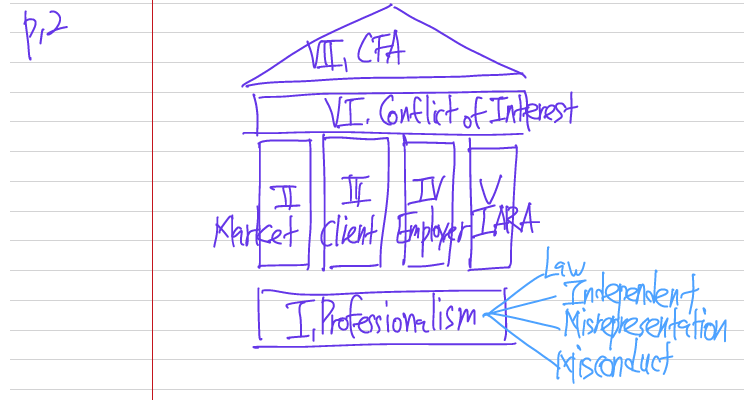 p.2
VII. CFA
VI. Conflict of Interest
II
Market
III
Client
IV
Employer
V
IARA
I. Professionalism
Law
Independent
Misrepresentation
Misconduct